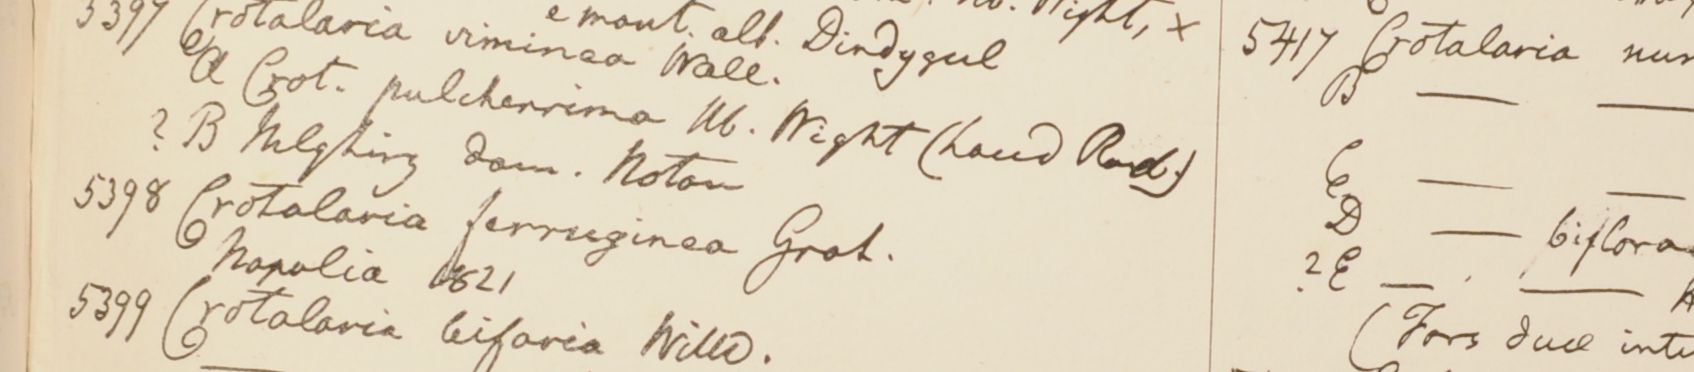 Hb. Wight, x
e mont. alt. Dindygul
5397 Crotalaria viminea Wall.
a Crot. pulcherrima Hb. Wight (haud Roxb.)
? B Nilghiry dom. Noton
5398 Crotalaria ferruginea Grah.
Napalia 1821
5399 Crotalaria bifaria Willd.
5417 Crotalaria
B — —
C — —
D — biflora
? E — —
(Fors duæ